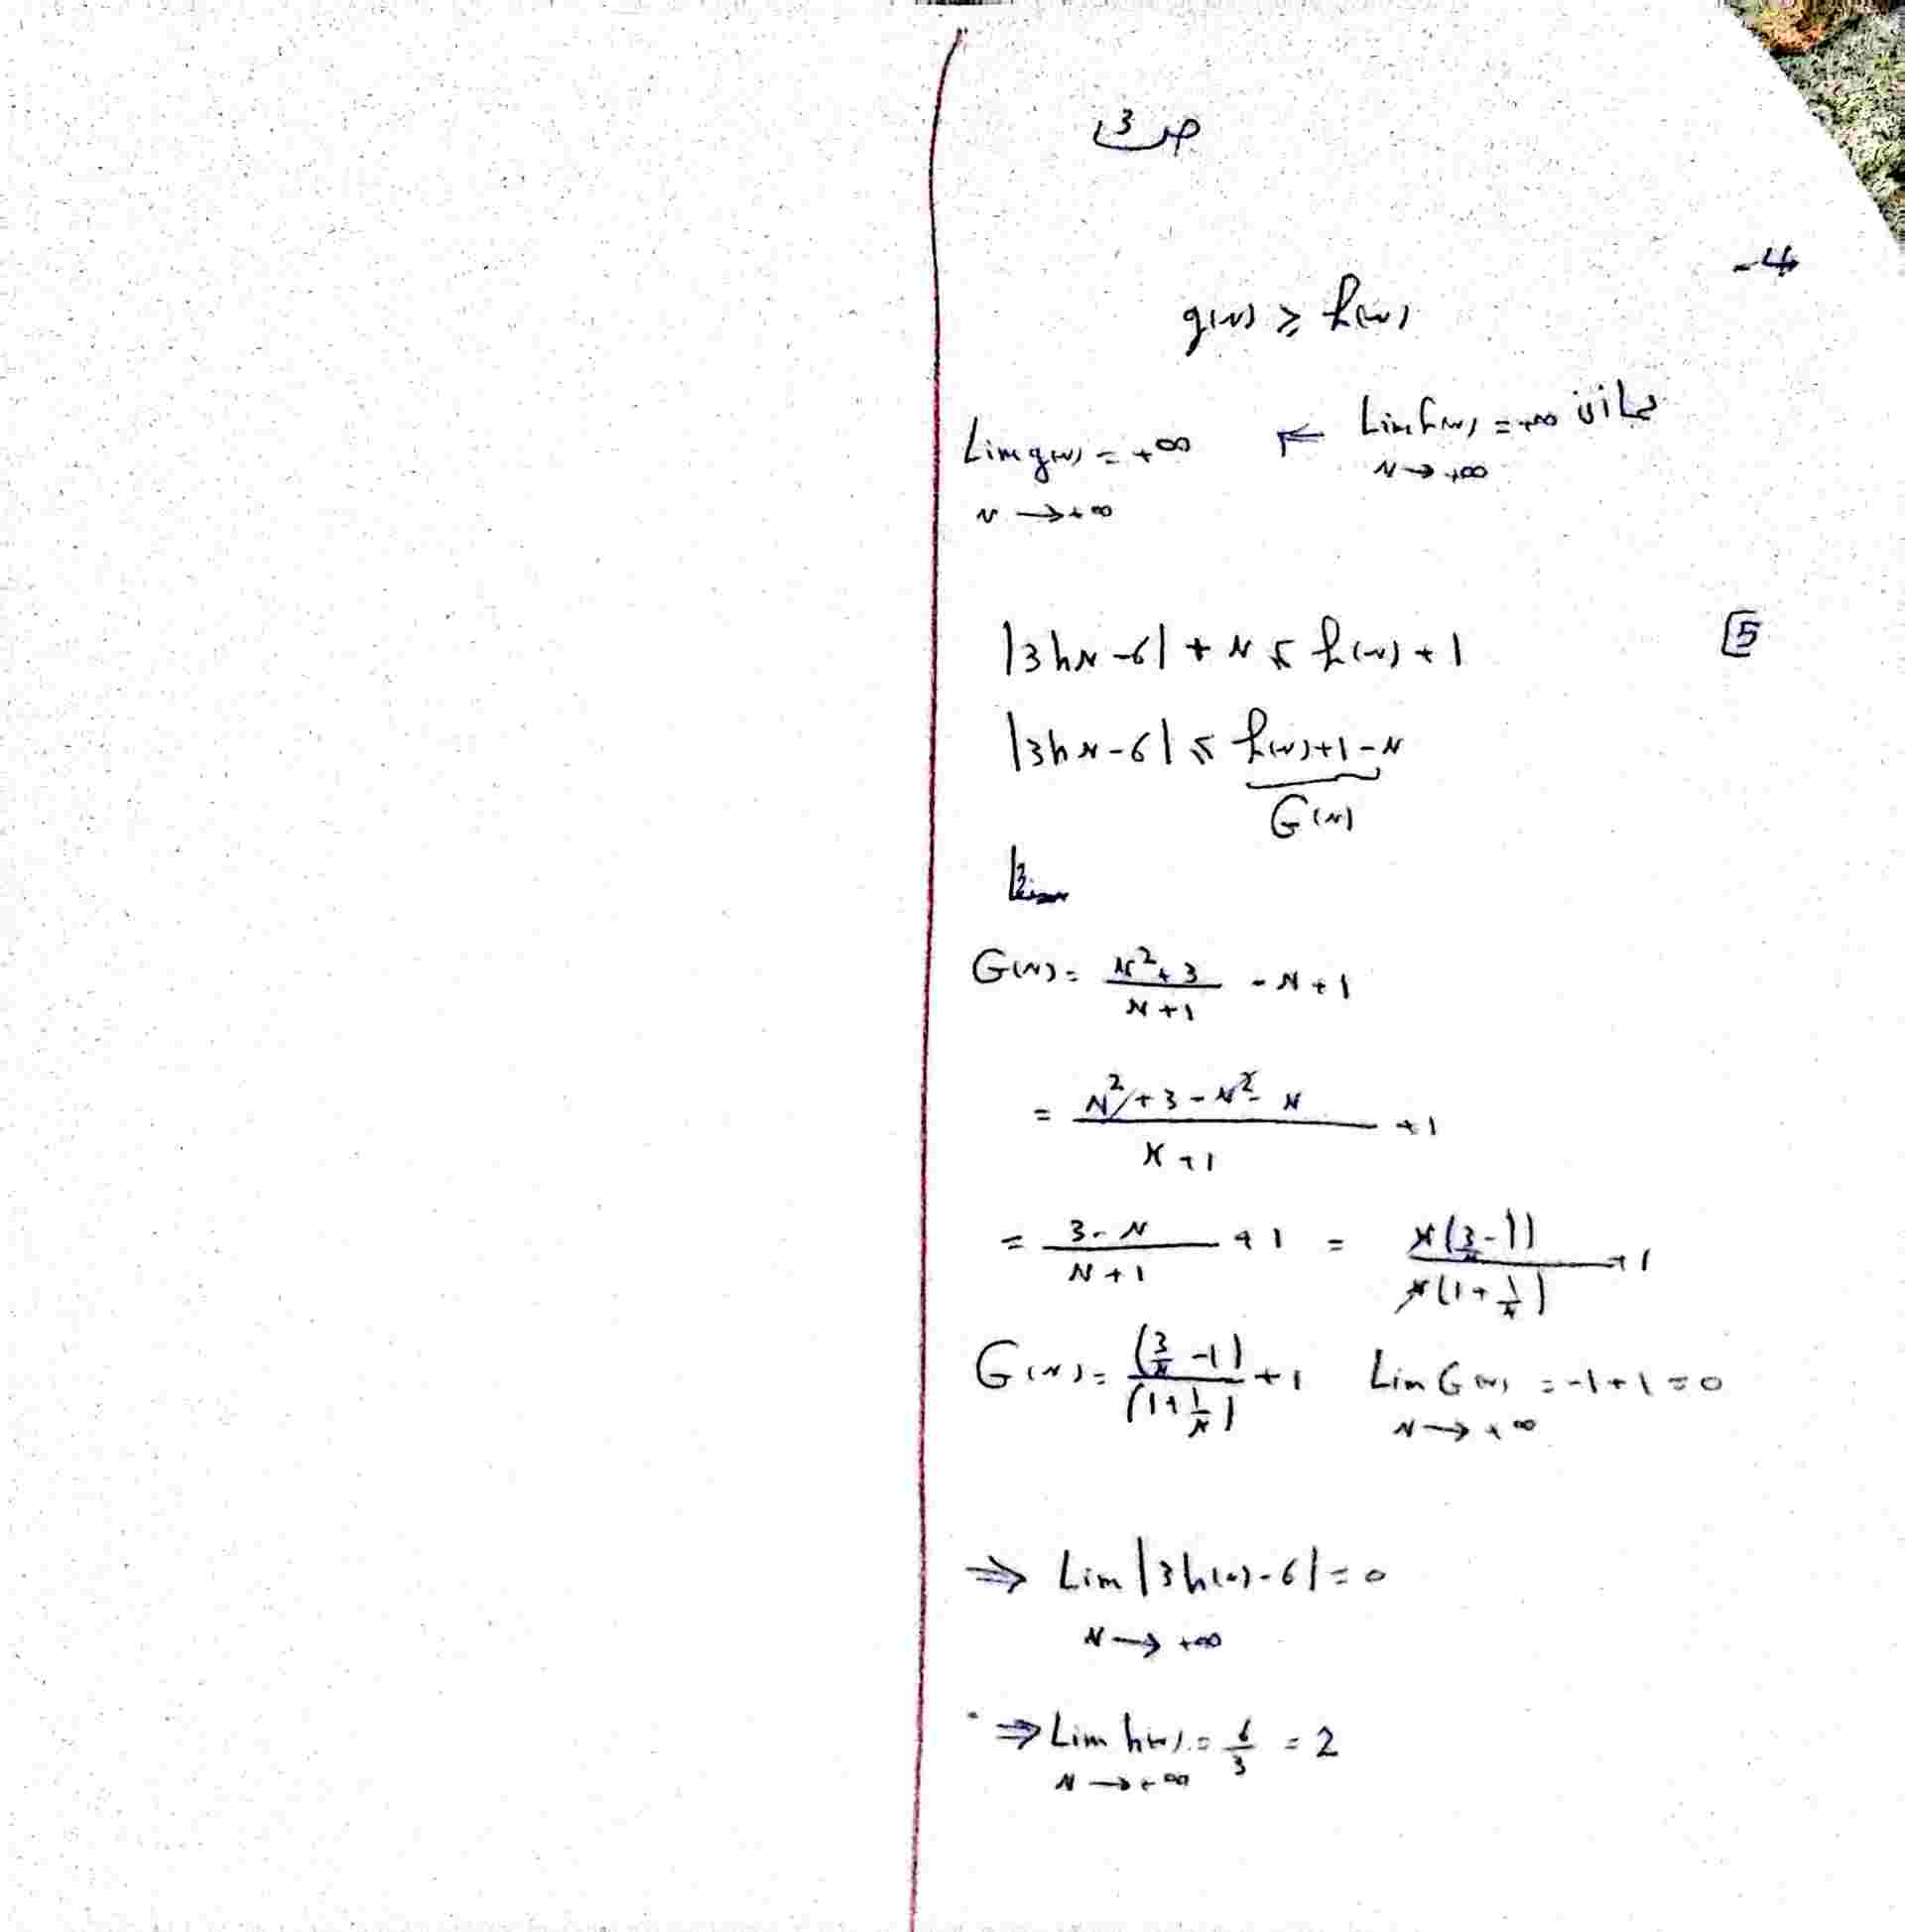 ص 3
4-
g(x) ≥ f(x)
بما أن Lim f(x) = +∞ ⇐ Lim g(x) = +∞
x → +∞ x → +∞
5
|3hx - 6| + x ≤ f(x) + 1
|3hx - 6| ≤ f(x) + 1 - x
G(x)
G(x) = (x² + 3)/(x + 1) - x + 1
= (x² + 3 - x² - x)/(x + 1) + 1
= (3 - x)/(x + 1) + 1 = x(3/x - 1)/x(1 + 1/x) + 1
G(x) = (3/x - 1)/(1 + 1/x) + 1 Lim G(x) = -1 + 1 = 0
x → +∞
⇒ Lim |3h(x) - 6| = 0
x → +∞
⇒ Lim h(x) = 6/3 = 2
x → +∞